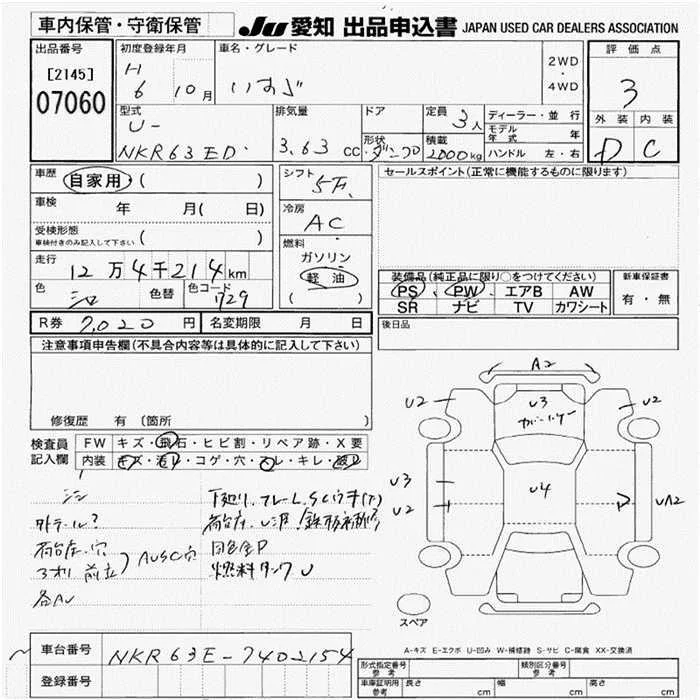 車内保管・守衛保管
JU 愛知 出品申込書 JAPAN USED CAR DEALERS ASSOCIATION
出品番号
[2145]
07060
初度登録年月
H 6 10月
車名・グレード
いすゞ
2WD
・
4WD
評価点
3
外装 内装
D C
型式
U-
NKR63ED
排気量
3.63 cc
ドア
形状
ダンプ
定員
3人
積載
2000kg
ディーラー・並行
モデル年式 年
ハンドル 左・右
車歴
自家用・( )
車検 年 月( 日)
受検形態
車検付きのみ記入して下さい ( )
走行
12万4千214km
色 色替 色コード
シロ 729
シフト 5F
冷房
AC
燃料
ガソリン
軽油
( )
セールスポイント(正常に機能するものに限ります)
装備品(純正品に限り○をつけてください)
PS PW エアB AW
SR ナビ TV カワシート
新車保証書
有・無
R券 7,020円 名変期限 月 日
後日品
注意事項申告欄(不具合内容等は具体的に記入して下さい)
修復歴 有 〔箇所
検査員
記入欄
FW キズ・飛石・ヒビ割・リペア跡・X要
内装 キズ・汚レ・コゲ・穴・スレ・キレ・破レ
シミ
外テール?
荷台左.穴
3方 前立
AUSC穴
各AU
荷台床.U.
同色全P
燃料タンクU
A2
U2
U3
カバー
U2
U3
U2
U4
UA2
スペア
A-キズ E-エクボ U-凹み W-補修跡 S-サビ C-腐食 XX-交換済
車台番号 NKR63E-7402154
登録番号
形式指定番号
参考
類別区分番号
参考
車庫証明用
参考
長さ cm 幅 cm 高さ cm